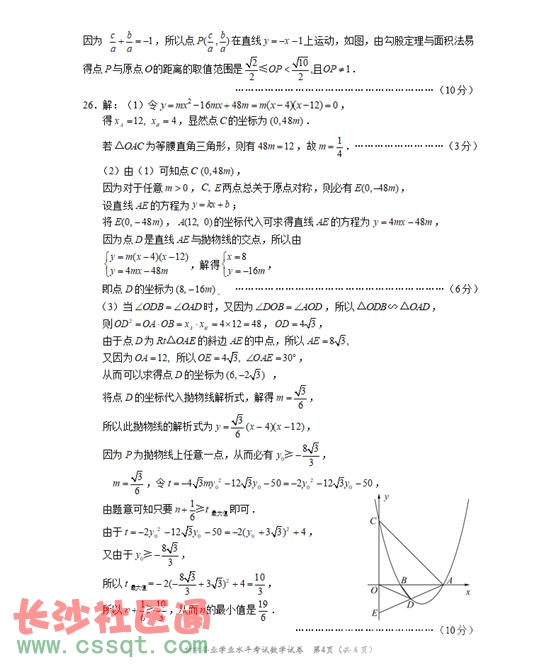 因为 c/a + b/a = -1，所以点 P(c/a, b/a) 在直线 y = -x - 1 上运动，如图，由勾股定理与面积法易
得点 P 与原点 O 的距离的取值范围是 √2/2 ≤ OP < √10/2 ,且 OP ≠ 1．
………………………………………………（10分）
26．解：（1）令 y = mx² - 16mx + 48m = m(x - 4)(x - 12) = 0，
得 x_A = 12, x_B = 4，显然点 C 的坐标为 (0,48m)．
若 △OAC 为等腰直角三角形，则有 48m = 12，故 m = 1/4．………………………（3分）
（2）由（1）可知点 C (0,48m)，
因为对于任意 m > 0，C, E 两点总关于原点对称，则必有 E(0,-48m)，
设直线 AE 的方程为 y = kx + b；
将 E(0, -48m)，A(12, 0) 的坐标代入可求得直线 AE 的方程为 y = 4mx - 48m，
因为点 D 是直线 AE 与抛物线的交点，所以由
{y = m(x - 4)(x - 12) y = 4mx - 48m，解得 {x = 8 y = -16m，
即点 D 的坐标为 (8, -16m)． ………………………………………………（6分）
（3）当 ∠ODB = ∠OAD 时，又因为 ∠DOB = ∠AOD，所以 △ODB∽△OAD，
则 OD² = OA·OB = x_A·x_B = 4×12 = 48，OD = 4√3，
由于点 D 为 Rt△OAE 的斜边 AE 的中点，所以 AE = 8√3，
又因为 OA = 12, 所以 OE = 4√3, ∠OAE = 30°，
从而可以求得点 D 的坐标为 (6, -2√3) ，
将点 D 的坐标代入抛物线解析式，解得 m = √3/6，
所以此抛物线的解析式为 y = √3/6 (x - 4)(x - 12)，
因为 P 为抛物线上任意一点，从而必有 y₀ ≥ -8√3/3，
m = √3/6，令 t = -4√3my₀² - 12√3y₀ - 50 = -2y₀² - 12√3y₀ - 50，
由题意可知只要 n + 1/6 ≥ t 最大值 即可．
由于 t = -2y₀² - 12√3y₀ - 50 = -2(y₀ + 3√3)² + 4，
又由于 y₀ ≥ -8√3/3，
所以 t 最大值 = -2(-8√3/3 + 3√3)² + 4 = 10/3，
所以 n + 1/6 ≥ 10/3，从而 n 的最小值是 19/6．
………………………………（10分）
y
C
O
B
A
x
D
E
业学业水平考试数学试卷 第4页（共4页）
长沙社区通
www.cssqt.com